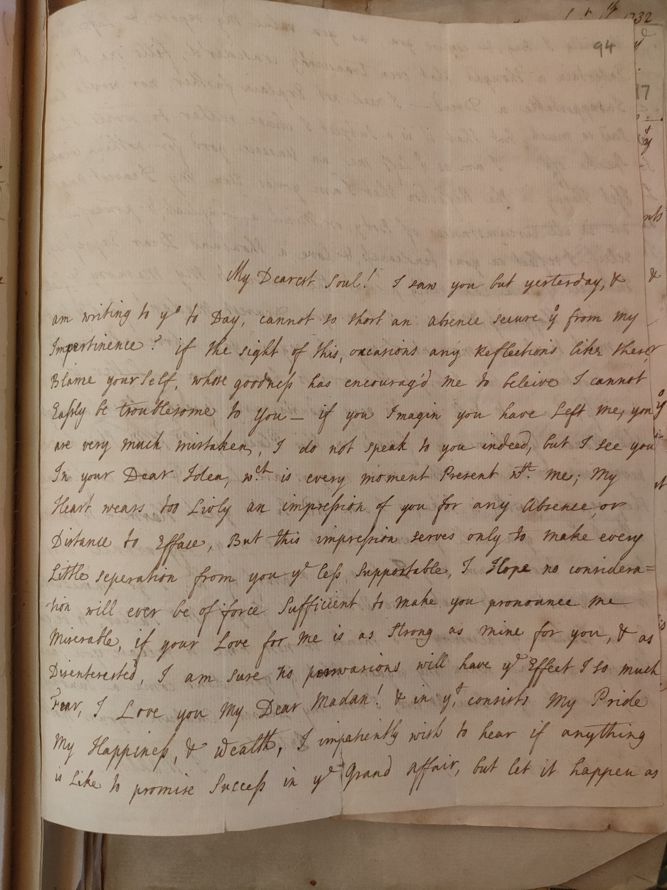 94
My Dearest Soul! I saw you but yesterday, &
am writing to yo to Day, cannot so short an absence secure yo from my
Impertinence? if the sight of this, occasions any Reflections like these
Blame yourself, whose goodness has encourag'd me to beleive I cannot
Easily be troublesome to you — if you Imagin you have Left me, you
are very much mistaken, I do not speak to you indeed, but I see you
In your Dear Idea, wch is every moment Present wth me; My
Heart wears too Livly an impression of you for any Absence, or
Distance to Efface, But this impression serves only to make every
Little seperation from you ye less supportable, I Hope no considera=
tion will ever be of force Sufficient to make you pronounce me
Miserable, if your Love for me is as Strong as mine for you, & as
Disenterested, I am sure no perswasions will have ye Effect I so much
Fear, I Love you My Dear Madan! & in yt consists My Pride
My Happiness, & Wealth, I impatiently wish to hear if anything
is Like to promise Success in ye Grand affair, but let it happen as